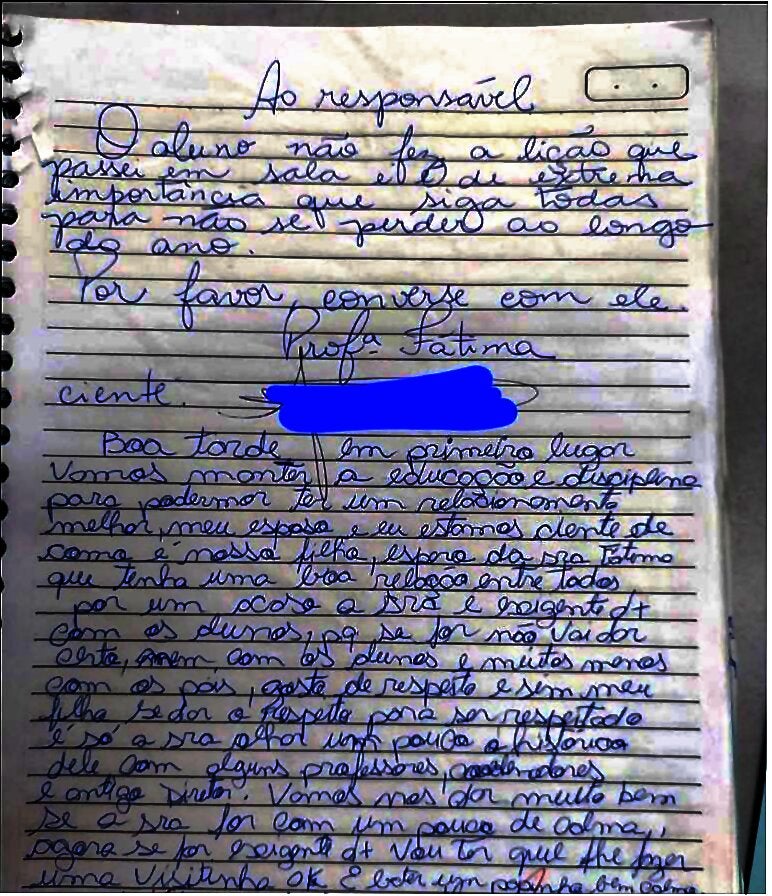 Ao responsável
O aluno não fez a lição que
passei em sala e é de extrema
importância que siga todas
para não se perder ao longo
do ano.
Por favor, converse com ele.
Profª Fátima
ciente.
Boa tarde em primeiro lugar
Vamos manter a educação e disciplina
para podermor ter um relacionamento
melhor, meu esposo e eu estamos ciente de
como é nosso filho, espero da sra Fátima
que tenha uma boa relação entre todos
por um acaso a srã é exigente d+
com os alunos, pq se for não vai dar
certo, nem com os alunos e muitos menos
com os pais, gosto de respeito e sim meu
filho se dar o respeito para ser respeitado
é só a sra olhar um pouco o histórico
dele com alguns professores,
e antigo Diretor. Vamos nos dar muito bem
se a sra for com um pouco de calma,
agora se for exigente d+ vou ter que lhe fazer
uma visitinha ok E bater um papinho bem